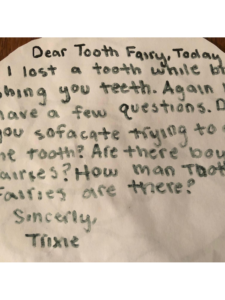 Dear Tooth Fairy, Today
I lost a tooth while b
shing you teeth. Again
have a few questions. D
you sofacate trying to
he tooth? Are there bou
fairses? How man Tooth
Fairies are there?
Sincerly,
Trixie